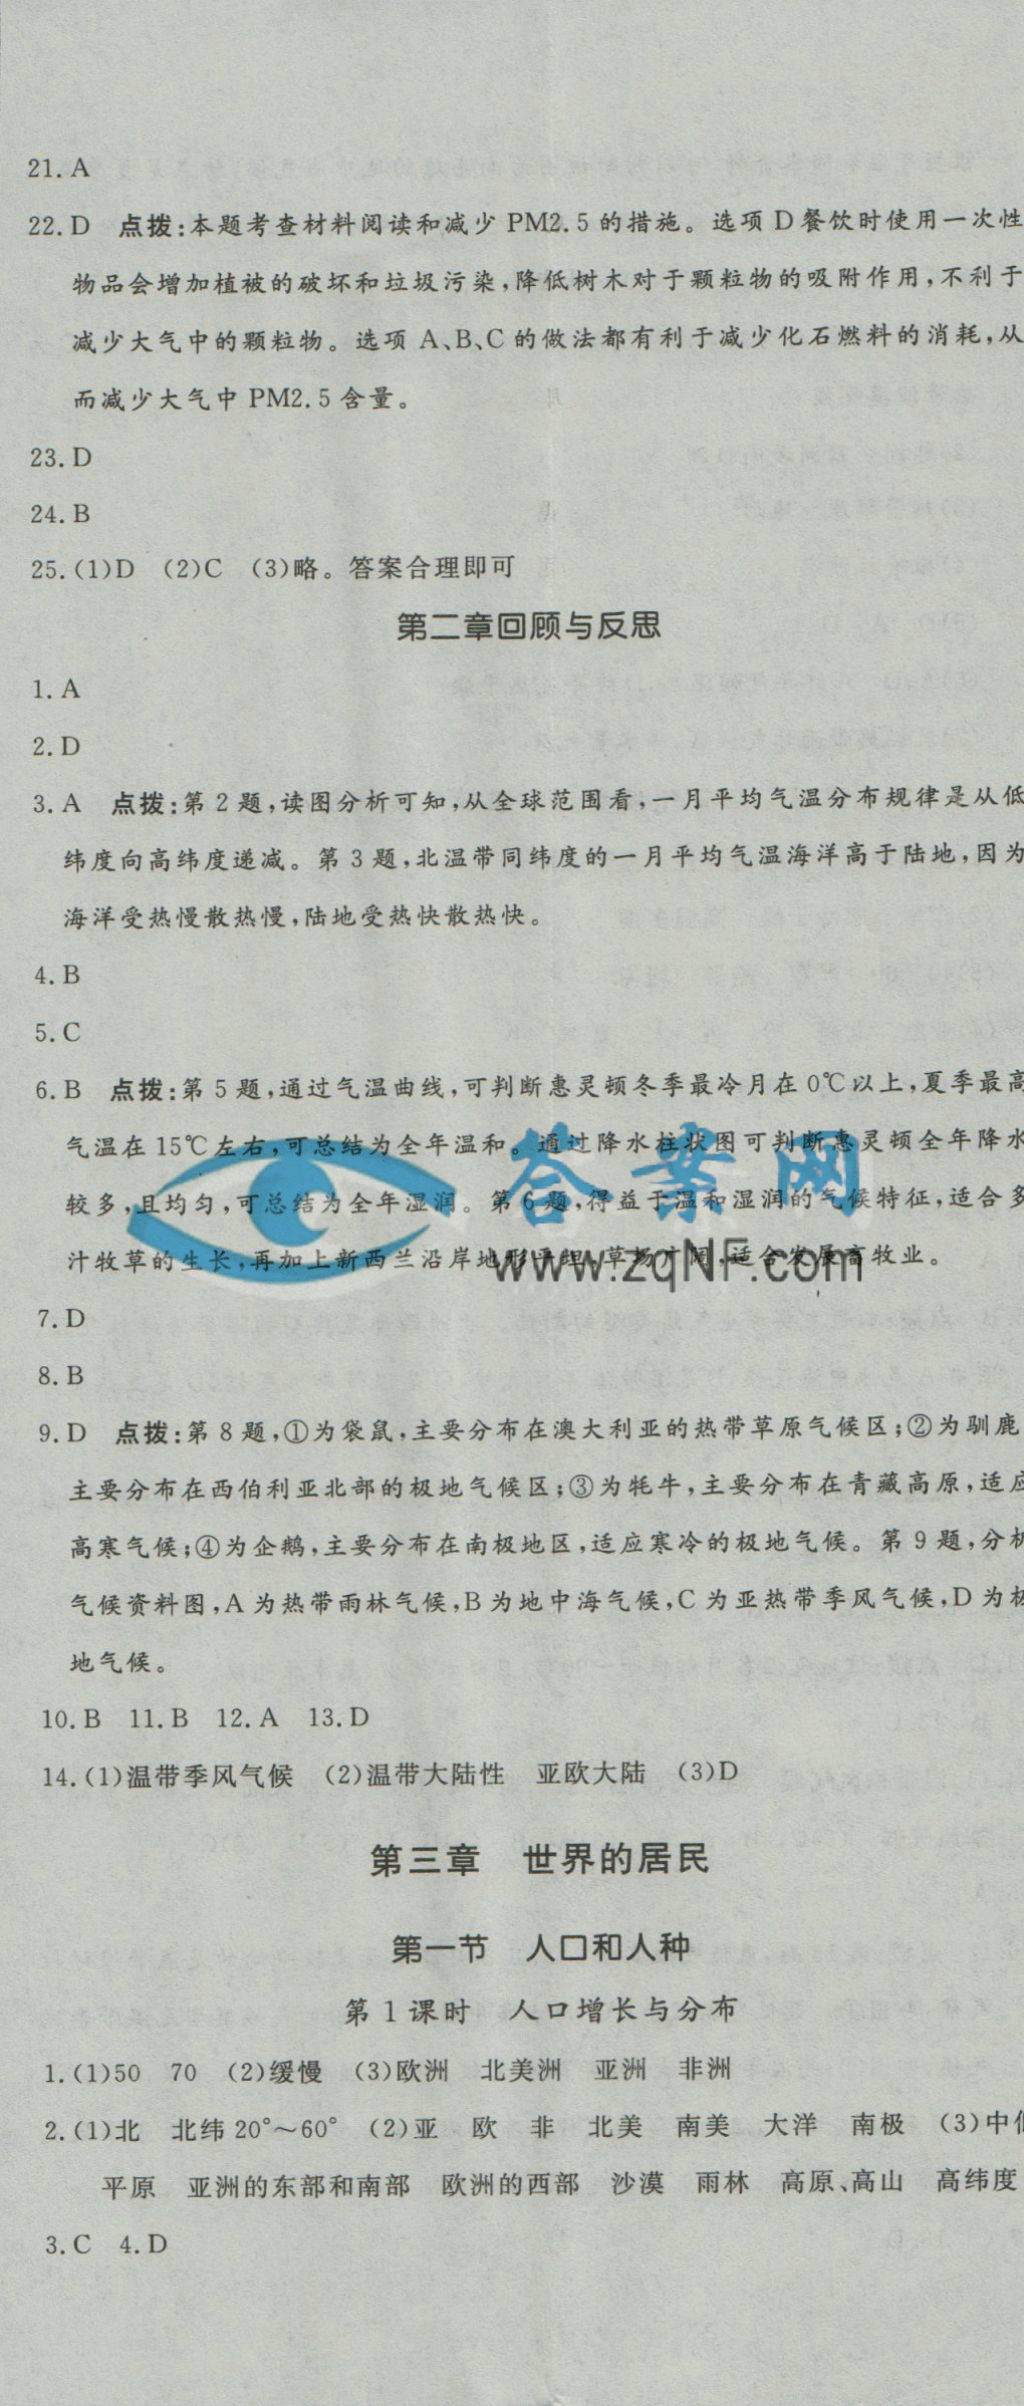 21. A
22. D 点拨:本题考查材料阅读和减少 PM2.5 的措施。选项 D 餐饮时使用一次性
物品会增加植被的破坏和垃圾污染,降低树木对于颗粒物的吸附作用,不利于
减少大气中的颗粒物。选项 A、B、C 的做法都有利于减少化石燃料的消耗,从
而减少大气中 PM2.5 含量。
23. D
24. B
25. (1)D (2)C (3)略。答案合理即可
第二章回顾与反思
1. A
2. D
3. A 点拨:第 2 题,读图分析可知,从全球范围看,一月平均气温分布规律是从低
纬度向高纬度递减。第 3 题,北温带同纬度的一月平均气温海洋高于陆地,因为
海洋受热慢散热慢,陆地受热快散热快。
4. B
5. C
6. B 点拨:第 5 题,通过气温曲线,可判断惠灵顿冬季最冷月在 0℃以上,夏季最高
气温在 15℃左右,可总结为全年温和。通过降水柱状图可判断惠灵顿全年降水
较多,且均匀,可总结为全年湿润。第 6 题,得益于温和湿润的气候特征,适合多
汁牧草的生长,再加上新西兰沿岸地形平坦,草场广阔,适合发展畜牧业。
答案网
www.zqNF.com
7. D
8. B
9. D 点拨:第 8 题,①为袋鼠,主要分布在澳大利亚的热带草原气候区;②为驯鹿
主要分布在西伯利亚北部的极地气候区;③为牦牛,主要分布在青藏高原,适应
高寒气候;④为企鹅,主要分布在南极地区,适应寒冷的极地气候。第 9 题,分析
气候资料图,A 为热带雨林气候,B 为地中海气候,C 为亚热带季风气候,D 为极
地气候。
10. B 11. B 12. A 13. D
14. (1)温带季风气候 (2)温带大陆性 亚欧大陆 (3)D
第三章 世界的居民
第一节 人口和人种
第 1 课时 人口增长与分布
1. (1)50 70 (2)缓慢 (3)欧洲 北美洲 亚洲 非洲
2. (1)北 北纬 20°～60° (2)亚 欧 非 北美 南美 大洋 南极 (3)中低
平原 亚洲的东部和南部 欧洲的西部 沙漠 雨林 高原、高山 高纬度
3. C 4. D